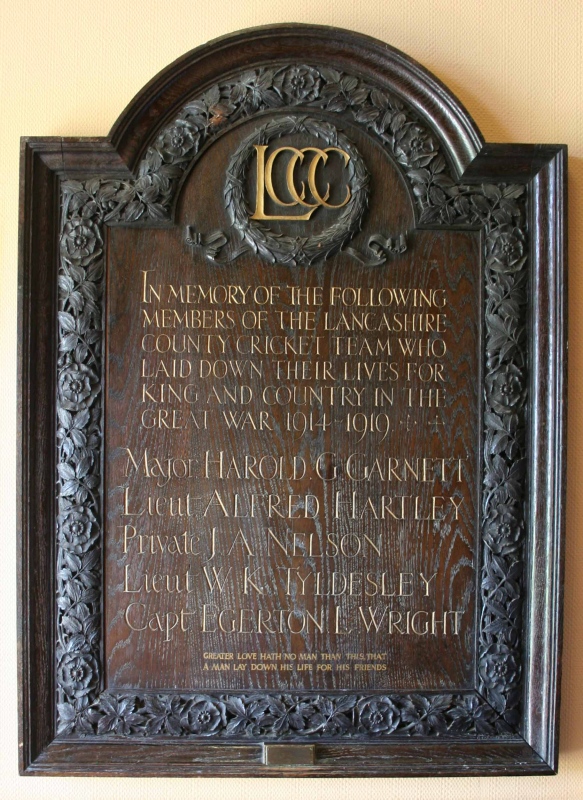 LCCC
IN MEMORY OF THE FOLLOWING
MEMBERS OF THE LANCASHIRE
COUNTY CRICKET TEAM WHO
LAID DOWN THEIR LIVES FOR
KING AND COUNTRY IN THE
GREAT WAR 1914-1919 + +
Major HAROLD G GARNETT
Lieut ALFRED HARTLEY
Private J. A. NELSON
Lieut W. K. TYLDESLEY
Capt EGERTON L. WRIGHT
GREATER LOVE HATH NO MAN THAN THIS, THAT
A MAN LAY DOWN HIS LIFE FOR HIS FRIENDS